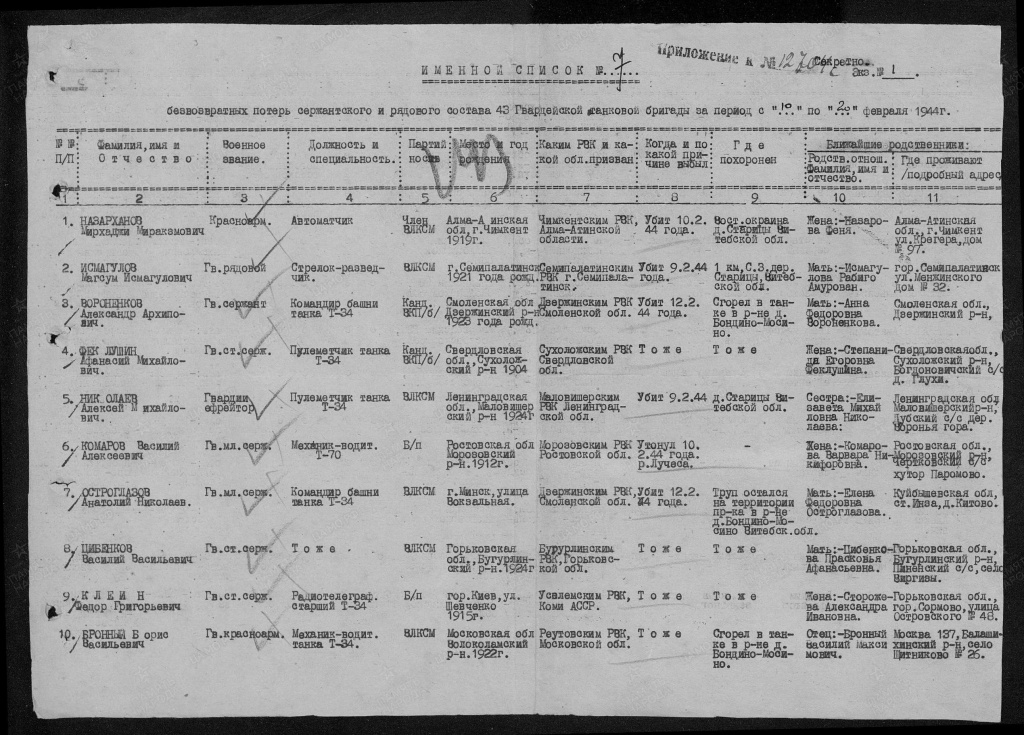 Приложение к № 12704с Секретно.
ИМЕННОЙ СПИСОК № 7 Экз.№ 1.
безвозвратных потерь сержантского и рядового состава 43 Гвардейской танковой бригады за период с "10" по "20" февраля 1944г.
№№ П/П
Фамилия,имя и Отчество
Военное звание.
Должность и специальность.
Партийность
Место и год рождения.
Каким РВК и какой обл.призван
Когда и по какой причине выбыл
Где похоронен
Ближайшие родственники:
Родств.отнош. Фамилия,имя и отчество.
Где проживают /подробный адрес
1 2 3 4 5 6 7 8 9 10 11
1. НАЗАРХАНОВ Красноарм. Автоматчик Член Алма-А инская Чимкентским РВК, Убит 10.2. Вост.окраина Жена:-Назаро- Алма-Атинская
Мирхаджи Миразмович ВЛКСМ обл.,г.Чимкент Алма-Атинской 44 года. д.Старицы Ви- ва Феня. обл., г.Чимкент
1919г. области. тебской обл. ул.Крегера,дом
№ 97.
2. ИСМАГУЛОВ Гв.рядовой Стрелок-развед- ВЛКСМ г.Семипалатинск Семипалатинским Убит 9.2.44 1 км,С.З.дер. Мать:-Исмагу- гор.Семипалатинск
Магсум Исмагулович чик. 1921 года рожд. РВК г.Семипала- года. Старицы,Витеб- лова Рабиго ул.Менжинского
тинск. ской обл. Амурован. Дом № 32.
3. ВОРОНЕНКОВ Гв.сержант Командир башни Канд. Смоленская обл Дзержинским РВК Убит 12.2. Сгорел в тан- Мать:-Анна Смоленская обл.,
Александр Архипо- танка Т-34 ВКП/б/ Дзержинский р-н Смоленской обл. 44 года. ке в р-не д. Федоровна Дзержинский р-н,
вич. 1923 года рожд. Бондино-Моси- Вороненкова.
но.
4. ФЕК ЛУШИН Гв.ст.серж. Пулеметчик танка Канд. Свердловская Сухоложским РВК Т о ж е Т о ж е Жена:-Степани- Свердловскаяобл.,
Афанасий Михайло- Т-34 ВКП/б/ обл.,Сухолож- Свердловской да Егоровна Сухоложский р-н,
вич. ский р-н 1904 обл. Феклушина. Богдоновичский с/с
д. Глухи.
5. НИК ОЛАЕВ Гвардии Пулеметчик танка ВЛКСМ Ленинградская Маловишерским Убит 9.2.44 д.Старицы Ви- Сестра:-Ели- Ленинградская обл
Алексей М ихайло- ефрейтор Т-34 обл.,Маловишер РВК Ленинград- года. тебской обл. завета Михай Маловишерскийр-н,
вич. ский р-н 1924г ской обл. ловна Нико- Дубский с/с дер.
лаева: Воронья гора.
6. КОМАРОВ Василий Гв.мл.серж. Механик-водит. Б/п Ростовская обл Морозовским РВК Утонул 10. - Жена:-Комаро- Ростовская обл.,
Алексеевич Т-70 Морозовский Ростовской обл. 2.44 года. ва Варвара Ни- Морозовский р-н,
р-н.1912г. р.Лучеса. кифоровна. Чертковский с/с
хутор Паромово.
7. ОСТРОГЛАЗОВ Гв.мл.серж. Командир башни ВЛКСМ г.Минск,улица Дзержинским РВК, Убит 12.2. Труп остался Мать:-Елена Куйбышевская обл,
Анатолий Николаев. танка Т-34 Вокзальная. Смоленской обл. 44 года. на территории Федоровна ст.Инза,д.Китово.
пр-ка в р-не Остроглазова.
д.Бондино-Мо-
сино Витебск.обл.
8. ЦИБЕНКОВ Гв.ст.серж. Т о ж е ВЛКСМ Горьковская Бутурлинским Т о ж е Т о ж е Мать:-Цибенко- Горьковская обл.,
Василий Васильевич обл.,Бутурлин- РВК,Горьковс- ва Прасковья Бутурлинский р-н,
ский р-н.1924г кой обл. Афанасьевна. Пиненский с/с,село
Виргивы.
9. К Л Е И Н Гв.ст.серж. Радиотелеграф. Б/п гор.Киев,ул. Усалемским РВК, Т о ж е Т о ж е Жена:-Стороже- Горьковская обл.,
Федор Григорьевич старший Т-34 Шевченко Коми АССР. ва Александра гор.Сормово,улица
1915г. Ивановна. Островского № 48.
10. БРОННЫЙ Б орис Гв.красноарм. Механик-водит. ВЛКСМ Московская обл Реутовским РВК, Т о ж е Сгорел в тан- Отец:-Бронный Москва 137,Балаши-
Васильевич танка Т-34. Волоколамский Московской обл. ке в р-не д. Василий Макси хинский р-н,село
р-н.1922г. Бондино-Моси- мович. Щитниково № 26.
но.